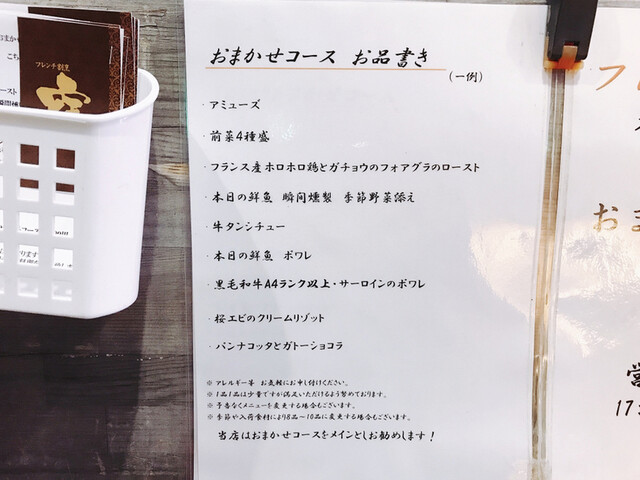 おまかせコース お品書き
(一例)
・アミューズ
・前菜4種盛
・フランス産ホロホロ鶏とガチョウのフォアグラのロースト
・本日の鮮魚 瞬間燻製 季節野菜添え
・牛タンシチュー
・本日の鮮魚 ポワレ
・黒毛和牛A4ランク以上・サーロインのポワレ
・桜エビのクリームリゾット
・パンナコッタとガトーショコラ
※アレルギー等 お気軽にお申し付けください。
※1品1品は少量ですが満足いただけるよう努めております。
※予告なくメニューを変更する場合もございます。
※季節や入荷食材により8品〜10品に変更する場合もございます。
当店はおまかせコースをメインとしお勧めします!
フレンチ割烹
おま
営
17: